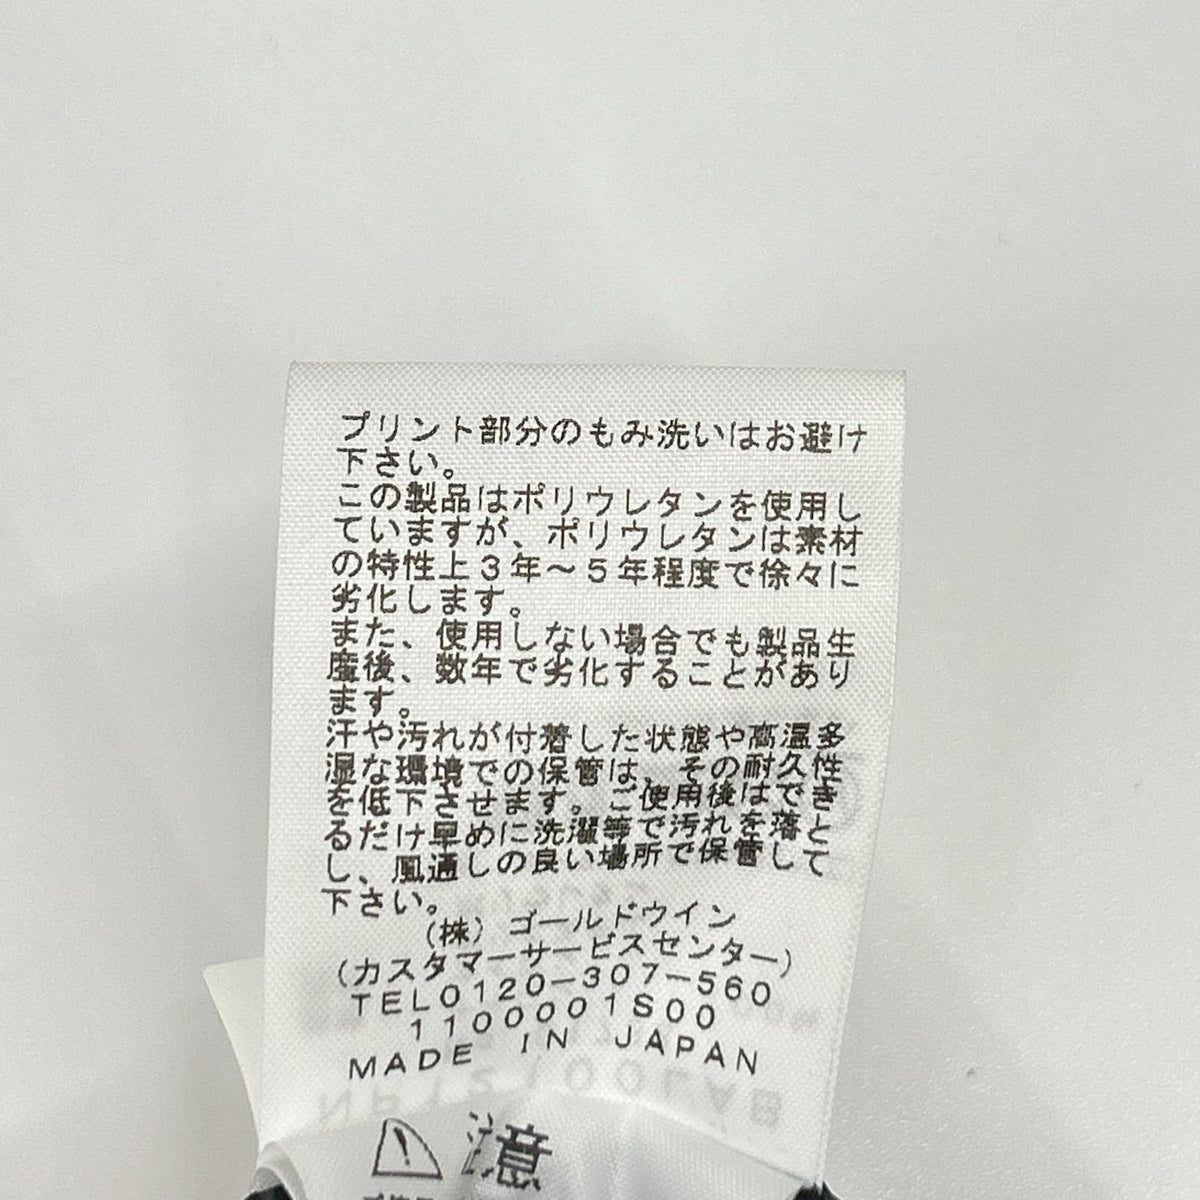 プリント部分のもみ洗いはお避け
下さい。
この製品はポリウレタンを使用し
ていますが、ポリウレタンは素材
の特性上3年～5年程度で徐々に
劣化します。
また、使用しない場合でも製品生
産後、数年で劣化することがあり
ます。
汗や汚れが付着した状態や高温多
湿な環境での保管は、その耐久性
を低下させます。ご使用後はでき
るだけ早めに洗濯等で汚れを落と
し、風通しの良い場所で保管して
下さい。
（株）ゴールドウイン
（カスタマーサービスセンター）
TEL0120-307-560
1100001S00
MADE IN JAPAN
注意